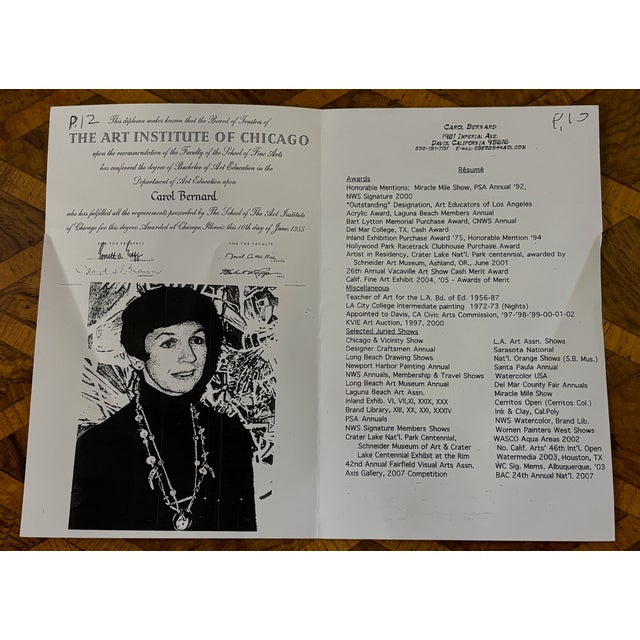 P.12
This diploma makes known that the Board of Trustees of
THE ART INSTITUTE OF CHICAGO
upon the recommendation of the Faculty of the School of Fine Arts
has conferred the degree of Bachelor of Art Education in the
Department of Art Education upon
Carol Bernard
who has fulfilled all the requirements prescribed by The School of The Art Institute
of Chicago for this degree. Awarded at Chicago, Illinois this 10th day of June, 1955
FOR THE TRUSTEES
FOR THE FACULTY
CAROL BERNARD
1987 IMPERIAL AVE.
DAVIS, CALIFORNIA 95616
Résumé
Awards
Honorable Mentions: Miracle Mile Show, PSA Annual '92,
NWS Signature 2000
"Outstanding" Designation, Art Educators of Los Angeles
Acrylic Award, Laguna Beach Members Annual
Bart Lytton Memorial Purchase Award, CNWS Annual
Del Mar College, TX, Cash Award
Inland Exhibition Purchase Award '75, Honorable Mention '94
Hollywood Park Racetrack Clubhouse Purchase Award
Artist in Residency, Crater Lake Nat'l. Park centennial, awarded by
Schneider Art Museum, Ashland, OR., June 2001
26th Annual Vacaville Art Show Cash Merit Award
Calif. Fine Art Exhibit 2004, '05 - Awards of Merit
Miscellaneous
Teacher of Art for the L.A. Bd. of Ed. 1956-87
LA City College Intermediate painting 1972-73 (Nights)
Appointed to Davis, CA Civic Arts Commission, '97-'98-'99-00-01-02
KVIE Art Auction, 1997, 2000
Selected Juried Shows
Chicago & Vicinity Show
Designer Craftsmen Annual
Long Beach Drawing Shows
Newport Harbor Painting Annual
NWS Annuals, Membership & Travel Shows
Long Beach Art Museum Annual
Laguna Beach Art Assn.
Inland Exhib. VI, VII,XI, XXIX, XXX
Brand Library, XIII, XX, XXI, XXXIV
PSA Annuals
NWS Signature Members Shows
Crater Lake Nat'l. Park Centennial,
Schneider Museum of Art & Crater
Lake Centennial Exhibit at the Rim
42nd Annual Fairfield Visual Arts Assn.
Axis Gallery, 2007 Competition
L.A. Art Assn. Shows
Sarasota National
Nat'l. Orange Shows (S.B. Mus.)
Santa Paula Annual
Watercolor USA
Del Mar County Fair Annuals
Miracle Mile Show
Cerritos Open (Cerritos Col.)
Ink & Clay, Cal.Poly
NWS Watercolor, Brand Lib.
Women Painters West Shows
WASCO Aqua Areas 2002
No. Calif. Arts' 46th Int'l. Open
Watermedia 2003, Houston, TX
WC Sig. Mems. Albuquerque, '03
BAC 24th Annual Nat'l. 2007